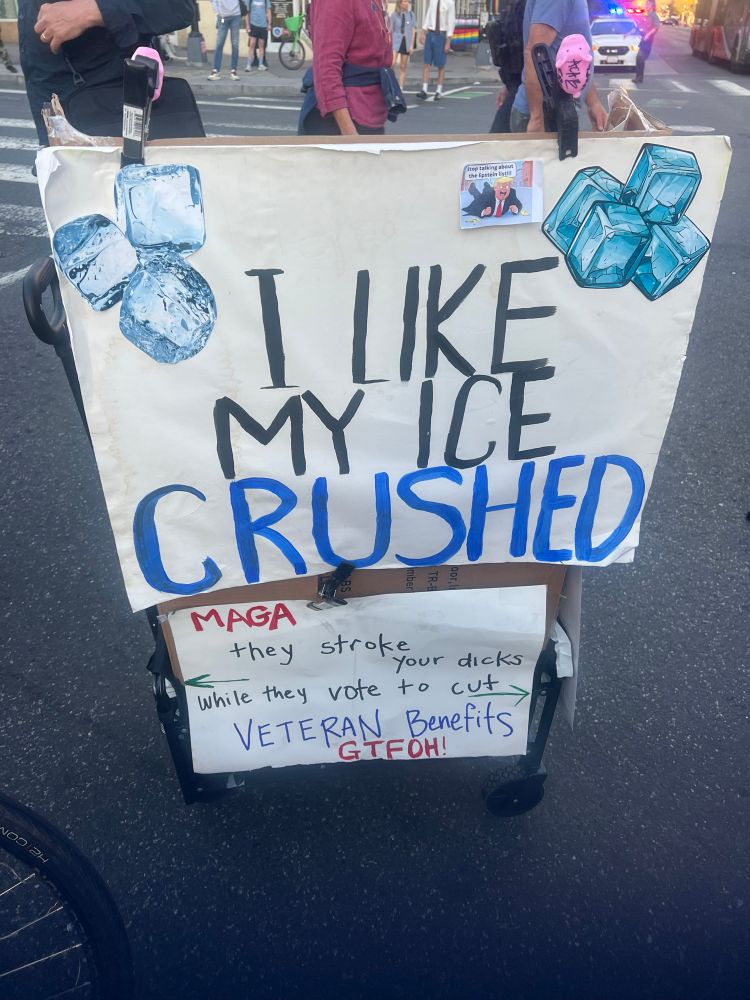 Stop talking about
the Epstein list!!!
I LIKE
MY ICE
CRUSHED
MAGA
they stroke
your dicks
while they vote to cut
VETERAN Benefits
GTFOH!